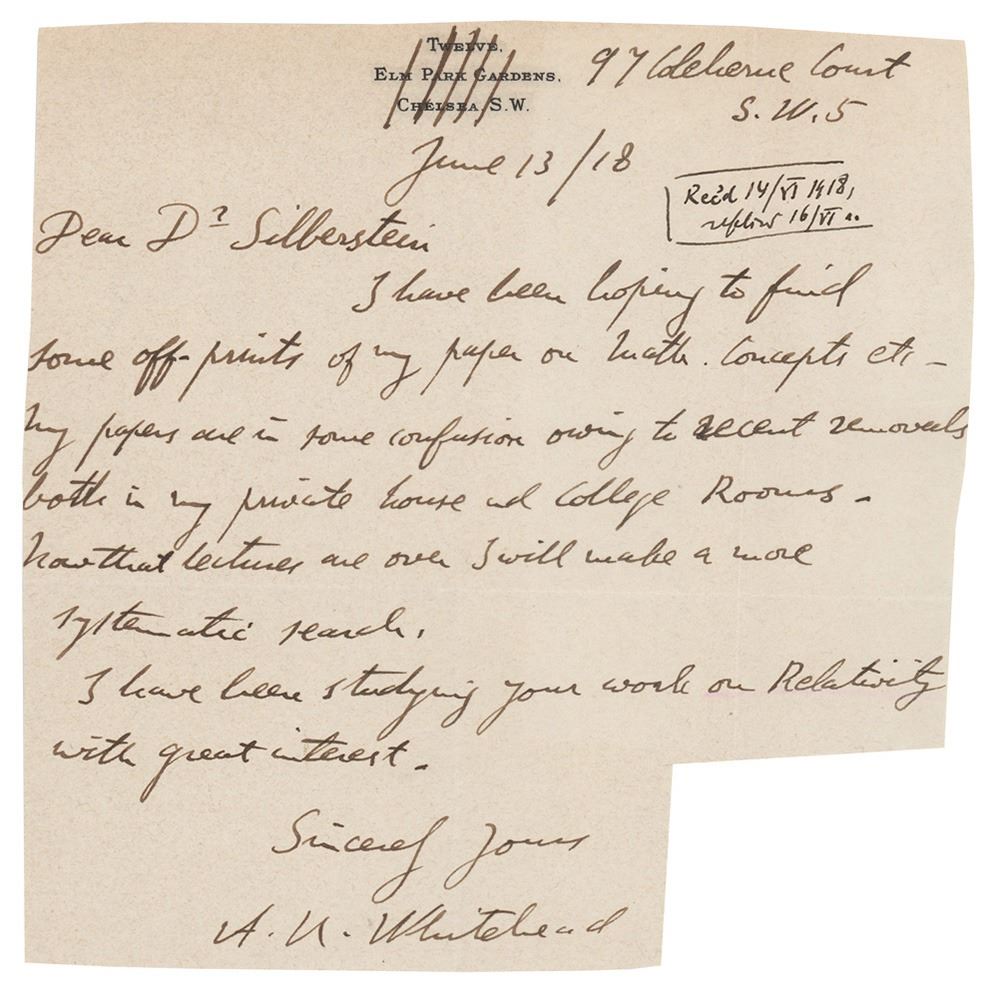 Twelve,
Elm Park Gardens,
Chelsea, S.W.
97 Coleherne Court
S. W. 5
June 13 / 18
Rec'd 14/VI 1918,
16/VI
Dear Dr Silberstein
I have been hoping to find
some off-prints of my paper on Math. Concepts etc –
My papers are in some confusion owing to recent removals
both in my private house and College Rooms –
Now that lectures are over I will make a more
systematic search.
I have been studying your work on Relativity
with great interest –
Sincerely Yours
A. N. Whitehead